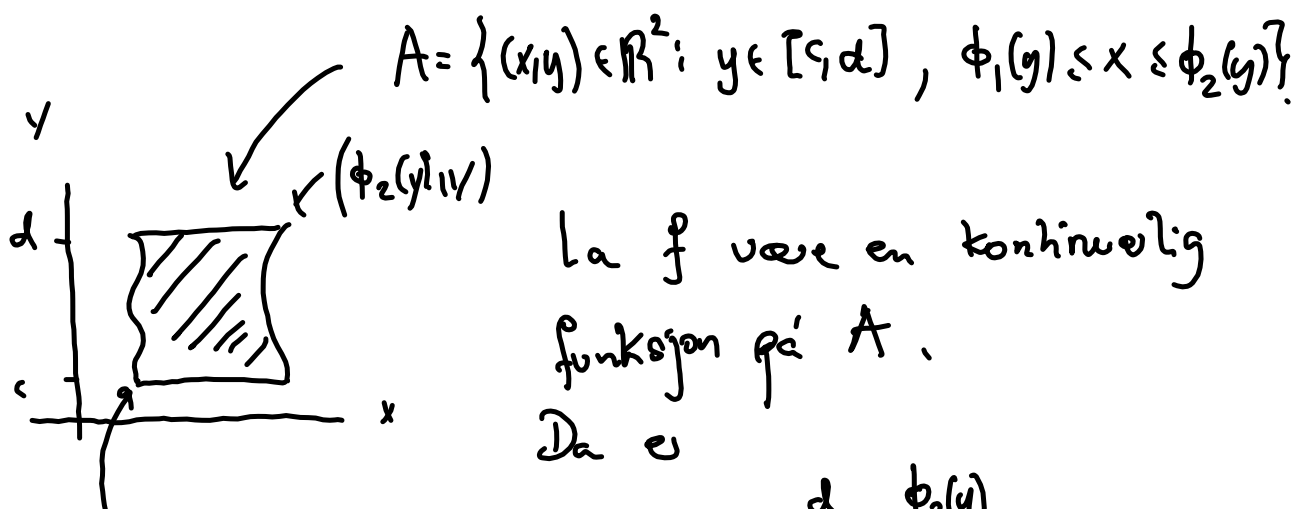 A = {(x,y) ∈ ℝ²: y ∈ [c,d] , ϕ₁(y) ≤ x ≤ ϕ₂(y)}.
y
(ϕ₂(y),y)
d
La f være en kontinuerlig
funksjon på A.
c
x
Da er
d ϕ₂(y)